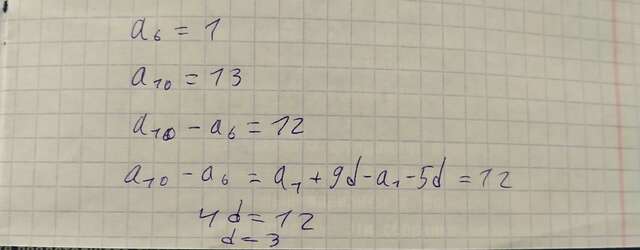 a₆ = 1
a₁₀ = 13
a₁₀ - a₆ = 12
a₁₀ - a₆ = a₁ + 9d - a₁ - 5d = 12
4d = 12
d = 3